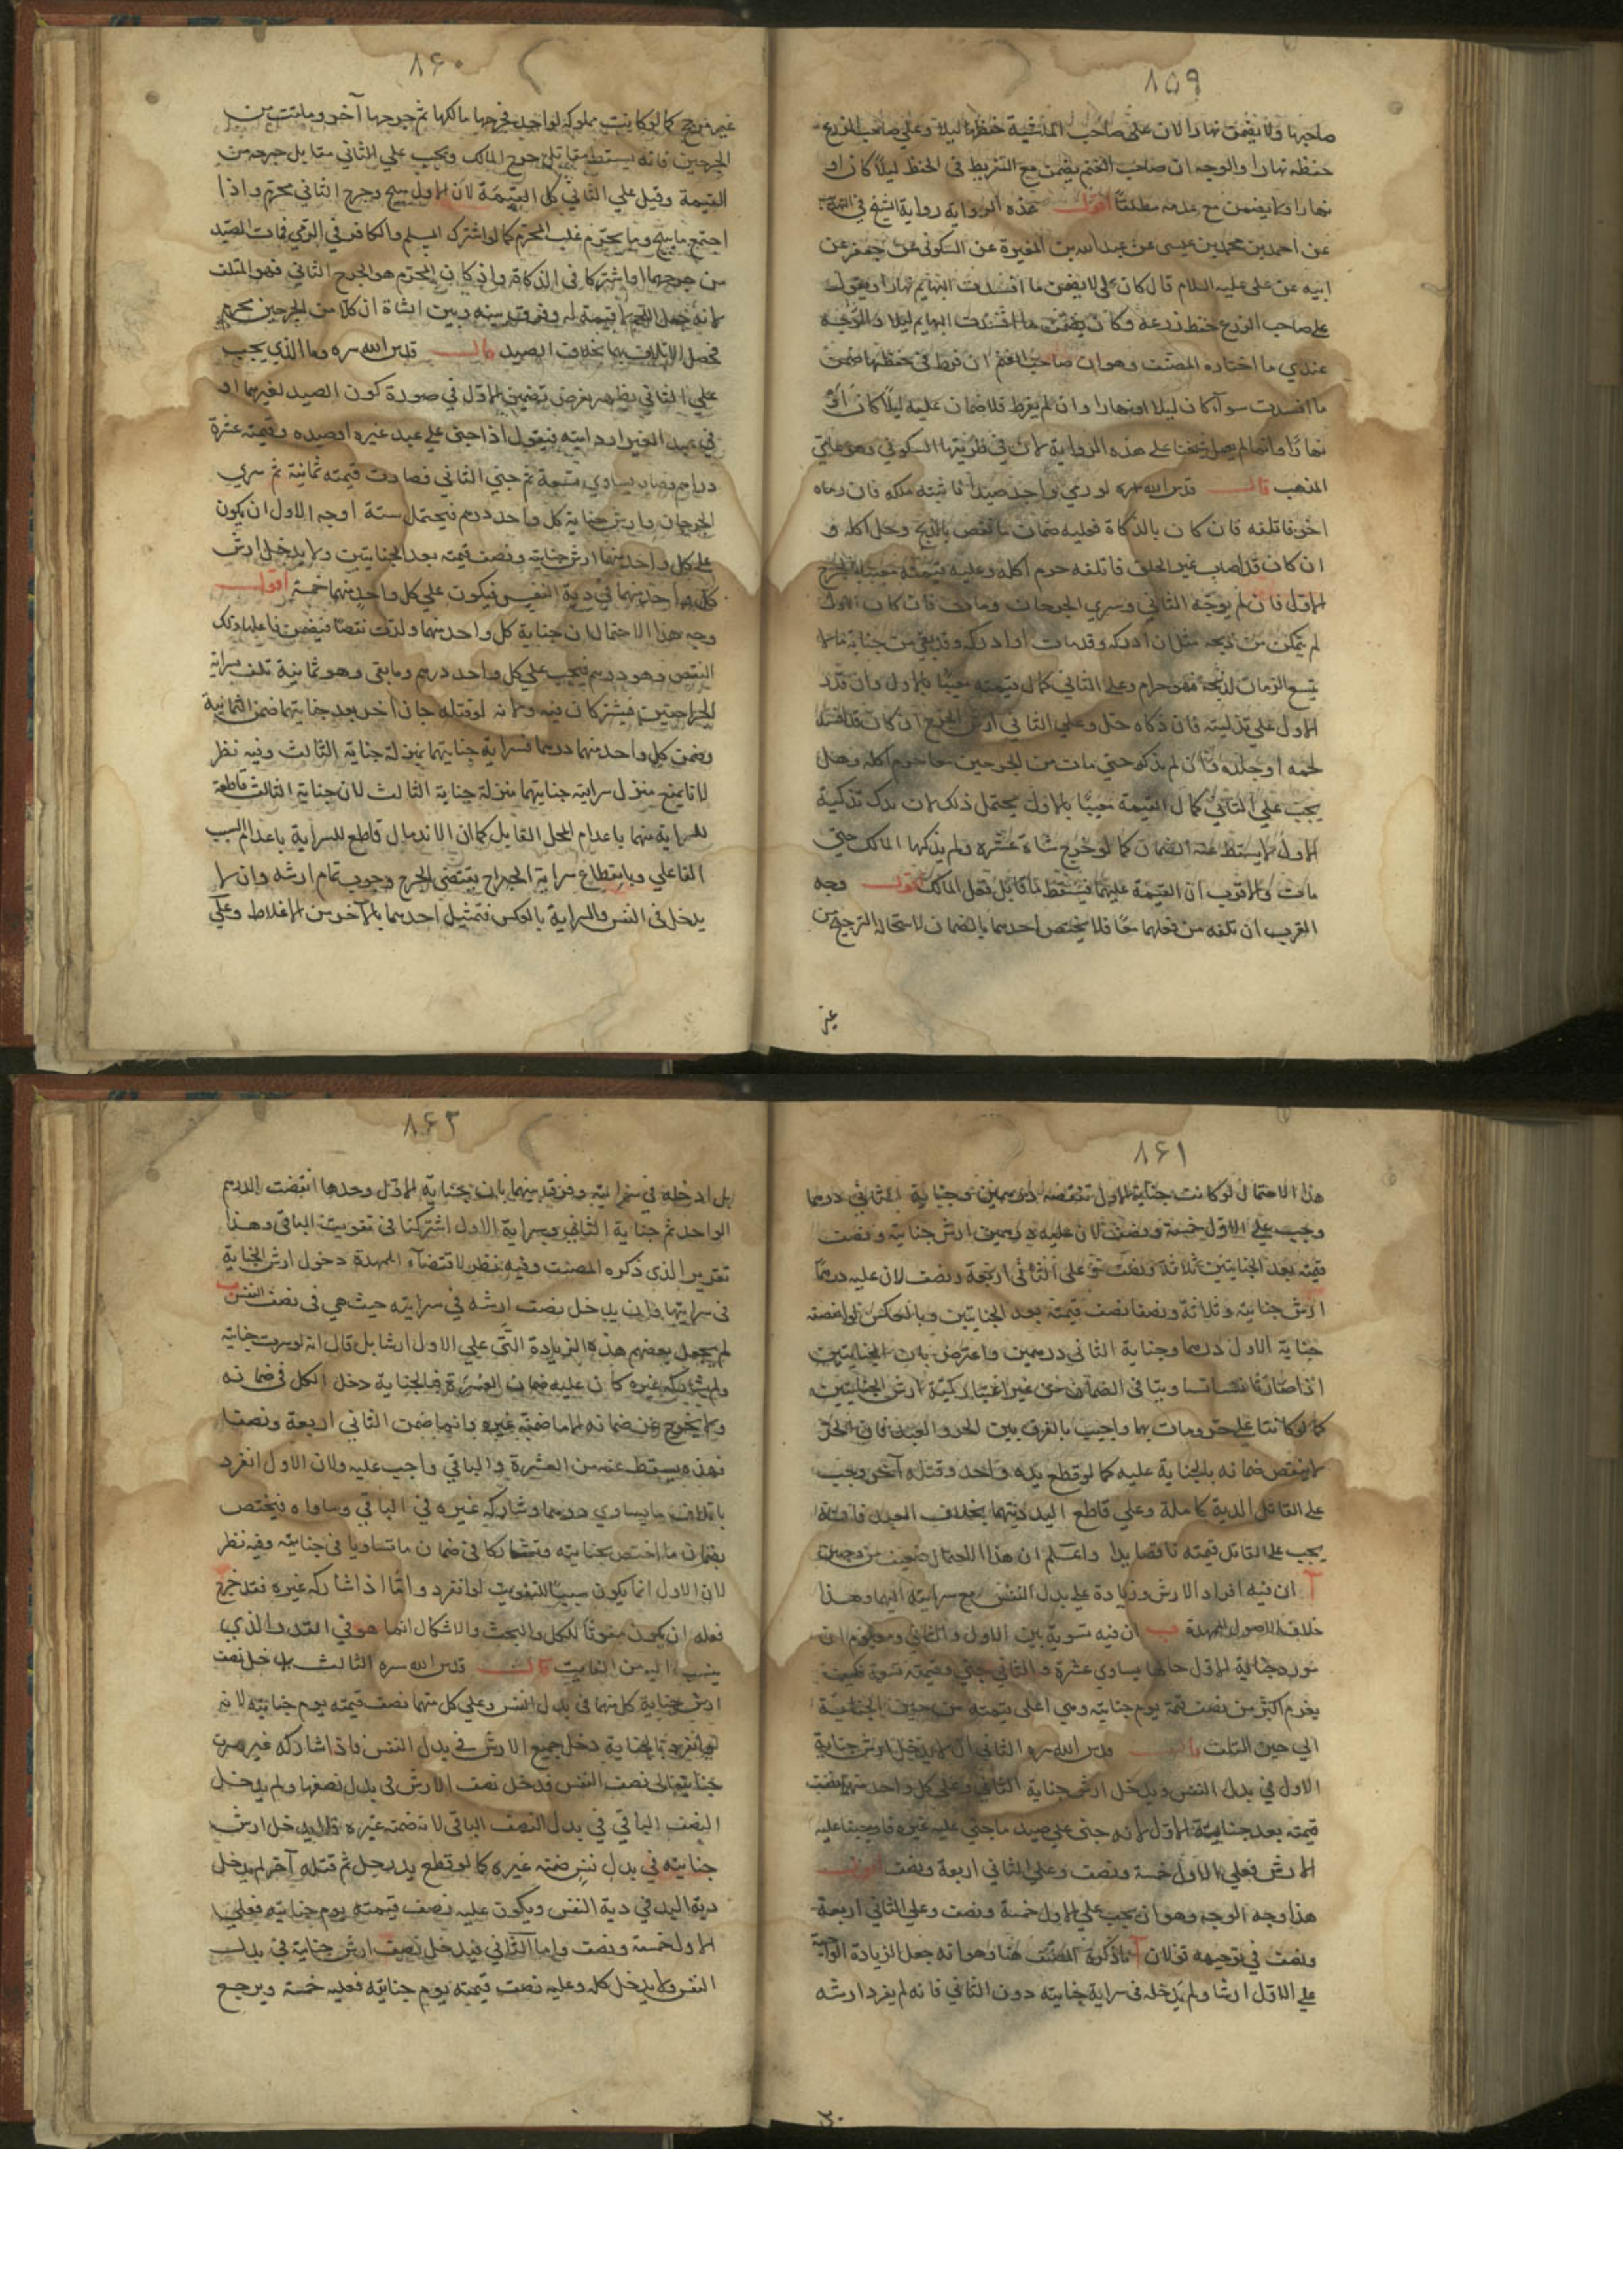 ٨۵٩
صاحبها ولا يضمن نهارا لان على صاحب الماشية حفظها ليلا وعلي صاحب الزرع
حفظه نهارا والوجه ان صاحب الغنم يضمن مع التفريط في الحفظ ليلا كان او
نهارا ولا يضمن مع عدمه مطلقا اقول هذه الرواية رواية الشيخ في
عن احمد بن محمد بن عيسى عن عبد الله بن المغيرة عن السكوني عن جعفر عن
ابيه عن علي عليه السلام قال كان علي لا يضمن ما افسدت البهايم نهارا ويقول
على صاحب الزرع حفظ زرعه وكان يضمن ما افسدت البهايم ليلا والوجه
عندي ما اختاره المصنف وهو ان صاحب الغنم ان فرط في حفظها ضمن
ما افسدت سوآء كان ليلا او نهارا وان لم يفرط فلا ضمان عليه ليلا كان او
نهارا وانما لم يعمل شيخنا على هذه الرواية لان في طريقها السكوني وهو عامي
المذهب قال قدس الله سره لو رمي واحد صيدا فاثبته ملكه فان رماه
اخر فاتلفه فان كان بالذكاة فعليه ضمان ما نقص بالذبح وحل اكله و
ان كان قد اصاب غير الحلق فاتلفه حرم اكله وعليه قيمته معيبا بالجرح
الاول فان لم يوجه الثاني وسري الجرحان ومات فان كان الاول
لم يتمكن من ذبحه مثل ان ادركه وقد مات او ادركه وقد بقي من حياته ما لا
يتسع الزمان لذبحه فهو حرام وعلى الثاني كمال قيمته معيبا بالاول وان قدر
الاول علي تذكيته فان ذكاه حل وعلي الثاني ارش الجرح ان كان قد افسد
لحمه او جلده وان لم يذكه حتي مات من الجرحين معا حرم اكله وهل
يجب علي الثاني كمال القيمة معيبا بالاول يحتمل ذلك لان ترك تذكية
الاول لا يسقط عنه الضمان كما لو جرح شاة غيره ولم يذكها المالك حتي
مات والاقرب ان القيمة عليهما فيسقط ما قابل فعل المالك اقول وجه
القرب ان تلفه من فعلهما معا فلا يختص احدهما بالضمان لاستحالة الترجيح من
غير
٨۶٠
غير مرجح كما لو كانت مملوكة لواحد فجرحها مالكها ثم جرحها آخر وماتت من
الجرحين فانه يسقط مقابل جرح المالك ويجب علي الثاني مقابل جرحه من
القيمة وقيل علي الثاني كل القيمة لان الاول مبيح وجرح الثاني محرم واذا
اجتمع ما يبيح وما يحرم غلب المحرم كما لو اشترك المسلم والكافر في الرمي فمات الصيد
من جرحهما او اشتركا في الذكاة واذا كان المحرم هو الجرح الثاني فهو المتلف
لانه جعل اللحم لا قيمة له وفرق بينه وبين الشاة ان كلا من الجرحين محرم
فحصل الاتلاف بهما بخلاف الصيد قال قدس الله سره وما الذي يجب
علي الثاني يظهر بفرض تضمين الاول في صورة كون الصيد لغيرهما او
في عبد الغير او دابته فنقول اذا جني علي عبد غيره او صيده وقيمته عشرة
دراهم فصار يساوي تسعة ثم جني الثاني فصارت قيمته ثمانية ثم سري
الجرحان وارش جناية كل واحد درهم فيحتمل ستة اوجه الاول ان يكون
على كل واحد منهما ارش جنايته ونصف قيمته بعد الجنايتين ولا يدخل ارش
كل واحد منهما في دية النفس فيكون علي كل واحد منهما خمسة اقول
وجه هذا الاحتمال ان جناية كل واحد منهما ولدت نقصا فيضمن فاعلها ذلك
النقص وهو درهم فيجب علي كل واحد درهم وما بقى وهو ثمانية تلف بسراية
الجراحتين فيشتركان فيه ولانه لو قتله جان آخر بعد جنايتهما ضمن الثمانية
وضمن كل واحد منهما درهما فسراية جنايتهما بمنزلة جناية الثالث وفيه نظر
لانا نمنع منزل سراية جنايتهما منزلة جناية الثالث لان جناية الثالث قاطعة
للسراية منهما باعدام المحل القابل كما ان الاندمال قاطع للسراية باعدام السبب
الفاعلي وبانقطاع سراية الجراح يقتضي الجرح وجوب تمام ارشه وان لا
يدخل في النفس والسراية بالعكس فتمثيل احدهما بالآخر من الاغلاط وعلي
٨۶١
هذا الاحتمال لو كانت جناية الاول تنقصه درهمين وجناية الثاني درهما
وجب على الاول خمسة ونصف لان عليه درهمين ارش جنايته ونصف
قيمته بعد الجنايتين ثلاثة ونصف وعلى الثاني اربعة ونصف لان عليه درهما
ارش جنايته وثلاثة ونصفا نصف قيمته بعد الجنايتين وبالعكس لو انقصته
جناية الاول درهما وجناية الثاني درهمين واعترض بان الجنايتين
اذا صارتا نفسا تساويا في الضمان من غير اعتبار كمية ارش الجنايتين
كما لو كانتا علي حر ومات بهما واجيب بالفرق بين الحر والعبد فان الحر
لا ينقص ضمانه بالجناية عليه كما لو قطع يده واحد وقتله آخر وجب
على القاتل الدية كاملة وعلي قاطع اليد ديتهما بخلاف العبد فانه
يجب على القاتل قيمته ناقصا يدا واعلم ان هذا الاحتمال ضعيف من وجهين
آ ان فيه افراد الارش وزيادة على بدل النفس مع سرايته اليها وهذا
خلاف الاصول الممهدة ب ان فيه تسوية بين الاول والثاني ومعلوم ان
مورد جناية الاول حالها يساوي عشرة والثاني جني وقيمته تسعة فكيف
يغرم اكثر من نصف قيمة يوم جنايته ومي اعلى قيمته من حين الجناية
الي حين التلف قال قدس الله سره الثاني ان لا يدخل ارش جناية
الاول في بدل النفس ويدخل ارش جناية الثاني وعلي كل واحد منهما نصف
قيمته بعد جناية الاول لانه جنى على صيد ما جني عليه غيره فاوجبنا عليه
الارش فعلي الاول خمسة ونصف وعلي الثاني اربعة ونصف اقول
هذا وجه الوجه وهو ان يجب علي الاول خمسة ونصف وعلي الثاني اربعة
ونصف في توجيهه قولان آ ما ذكره المصنف هنا وهو انه جعل الزيادة الواجبة
علي الاول ارشا ولم يدخله في سراية جنايته دون الثاني فانه لم يفرد ارشه
بل
٨۶٢
بل ادخله في سرايته وفرق بينهما بان بجناية الاول وحدها انقضت الدرهم
الواحد ثم جناية الثاني وسراية الاول اشتركتا في تفويت الباقي وهذا
تقرير الذي ذكره المصنف وفيه نظر لاقتضآء الممهدة دخول ارش الجناية
في سرايتها فاين يدخل نصف ارشه في سرايته حيث هي في نصف النفس ب
لم يجعل بعضهم هذه الزيادة التي علي الاول ارشا بل قال انه لو سرت جنايته
ولم يشاركه غيره كان عليه ضمان العشرة فبالجناية دخل الكل في ضمانه
ولا يخرج عن ضمانه الا ما ضمنه غيره وانما ضمن الثاني اربعة ونصفا
فهذه يسقط عنه من العشرة والباقي واجب عليه ولان الاول انفرد
باتلاف ما يساوي درهما وشاركه غيره في الباقي وساواه فيختص
بضمان ما اختص بجنايته وتشاركا في ضمان ما تساويا في جنايته وفيه نظر
لان الاول انما يكون سببا للتفويت لو انفرد واما اذا شاركه غيره فقد خرج
فعله ان يكون مفوتا للكل والبحث والاشكال انما هو في القدر الذي
ينسب اليه من الفايت قال قدس الله سره الثالث يدخل نصف
ارش جناية كل منهما في بدل النفس وعلي كل منهما نصف قيمته يوم جنايته لانه
لو انفرد بالجناية دخل جميع الارش في بدل النفس فاذا شاركه غيره صرت
جنايته الى نصف النفس فدخل نصف الارش في بدل نصفها ولم يدخل
النصف الباقي في بدل النصف الباقي لانه ضمنه غيره فلا يدخل ارش
جنايته في بدل نفس ضمنه غيره كما لو قطع يد رجل ثم قتله آخر لم يدخل
دية اليد في دية النفس ويكون عليه نصف قيمته يوم جنايته فعلي
الاول خمسة ونصف واما الثاني فيدخل نصف ارش جناية في بدل
النفس ولا يدخل كله وعليه نصف قيمته يوم جنايته فعليه خمسة ويرجع